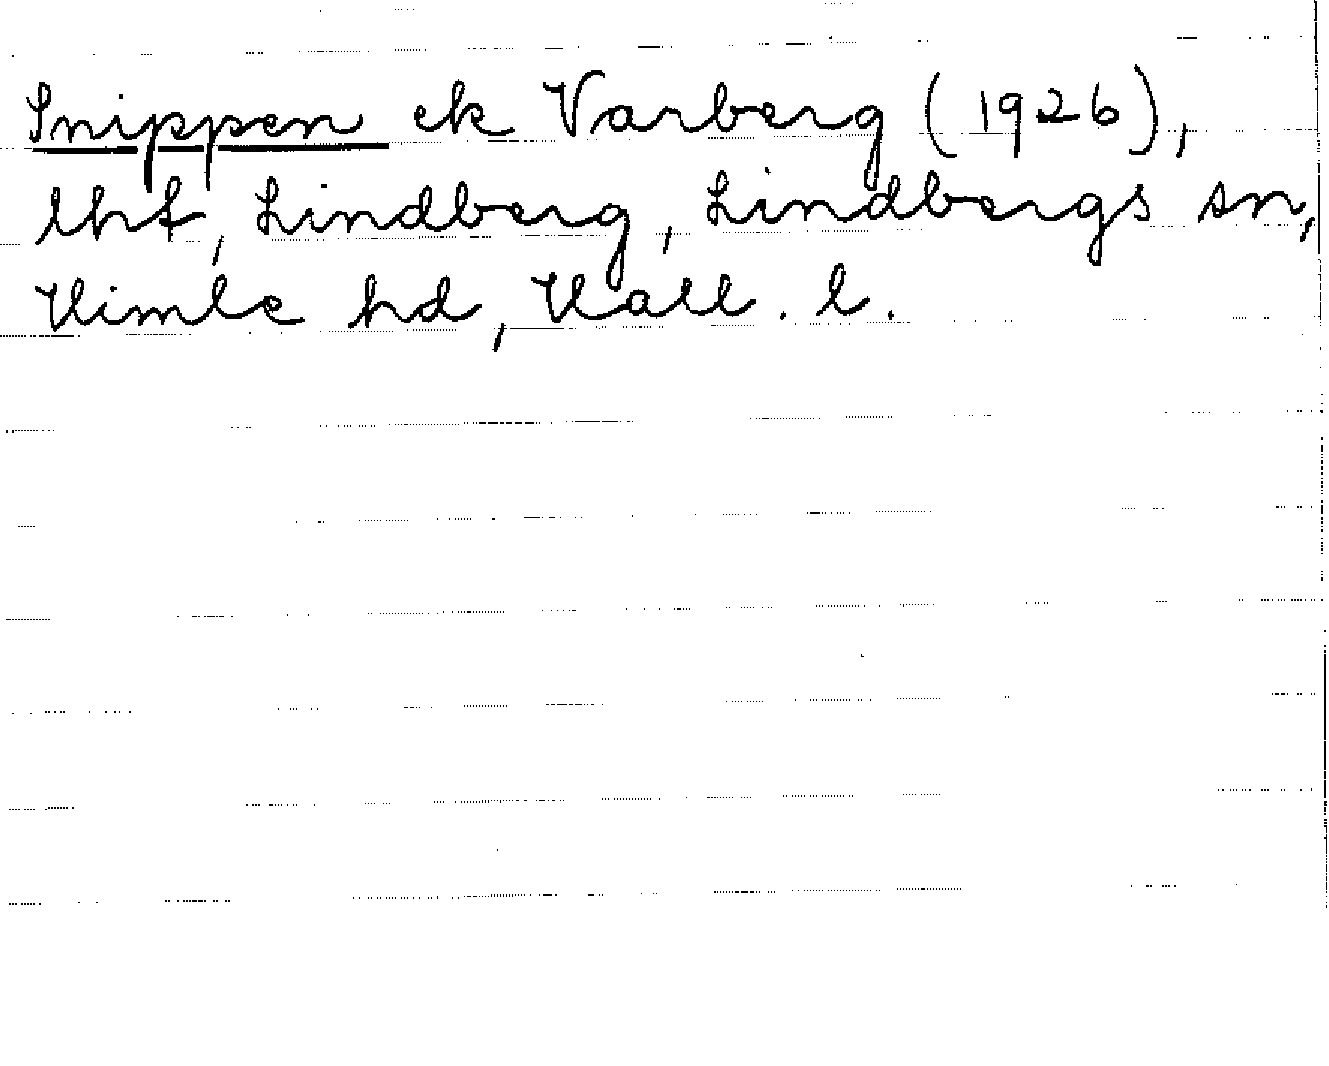 Snippen ek Varberg (1926),
lht, Lindberg, Lindbergs sn,
Himle hd, Hall. l.